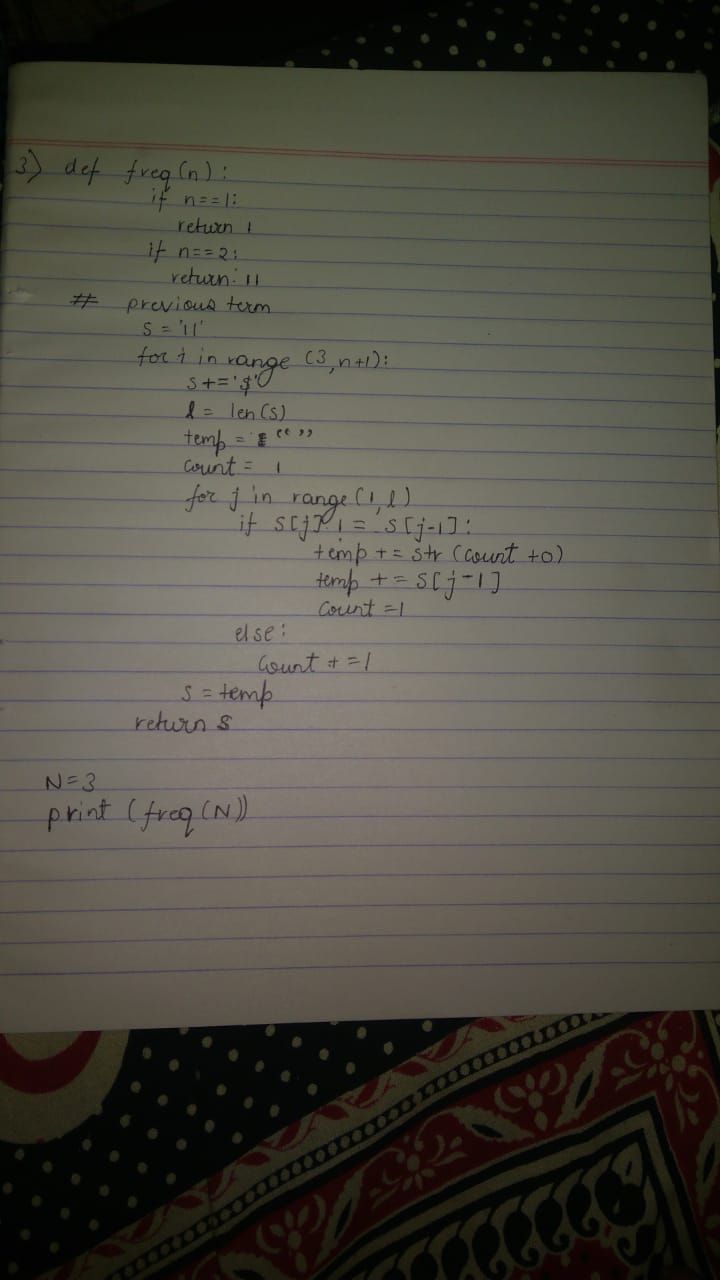 3) def freq(n):
if n==1:
return 1
if n==2:
return: 11
# previous term
s = '11'
for i in range (3,n+1):
s+='$'
l = len(s)
temp = “ ”
count = 1
for j in range(1,l)
if s[j] != s[j-1]:
temp += str (count +0)
temp += s[j-1]
count =1
else:
count +=1
s = temp
return s
N=3
print (freq(N))